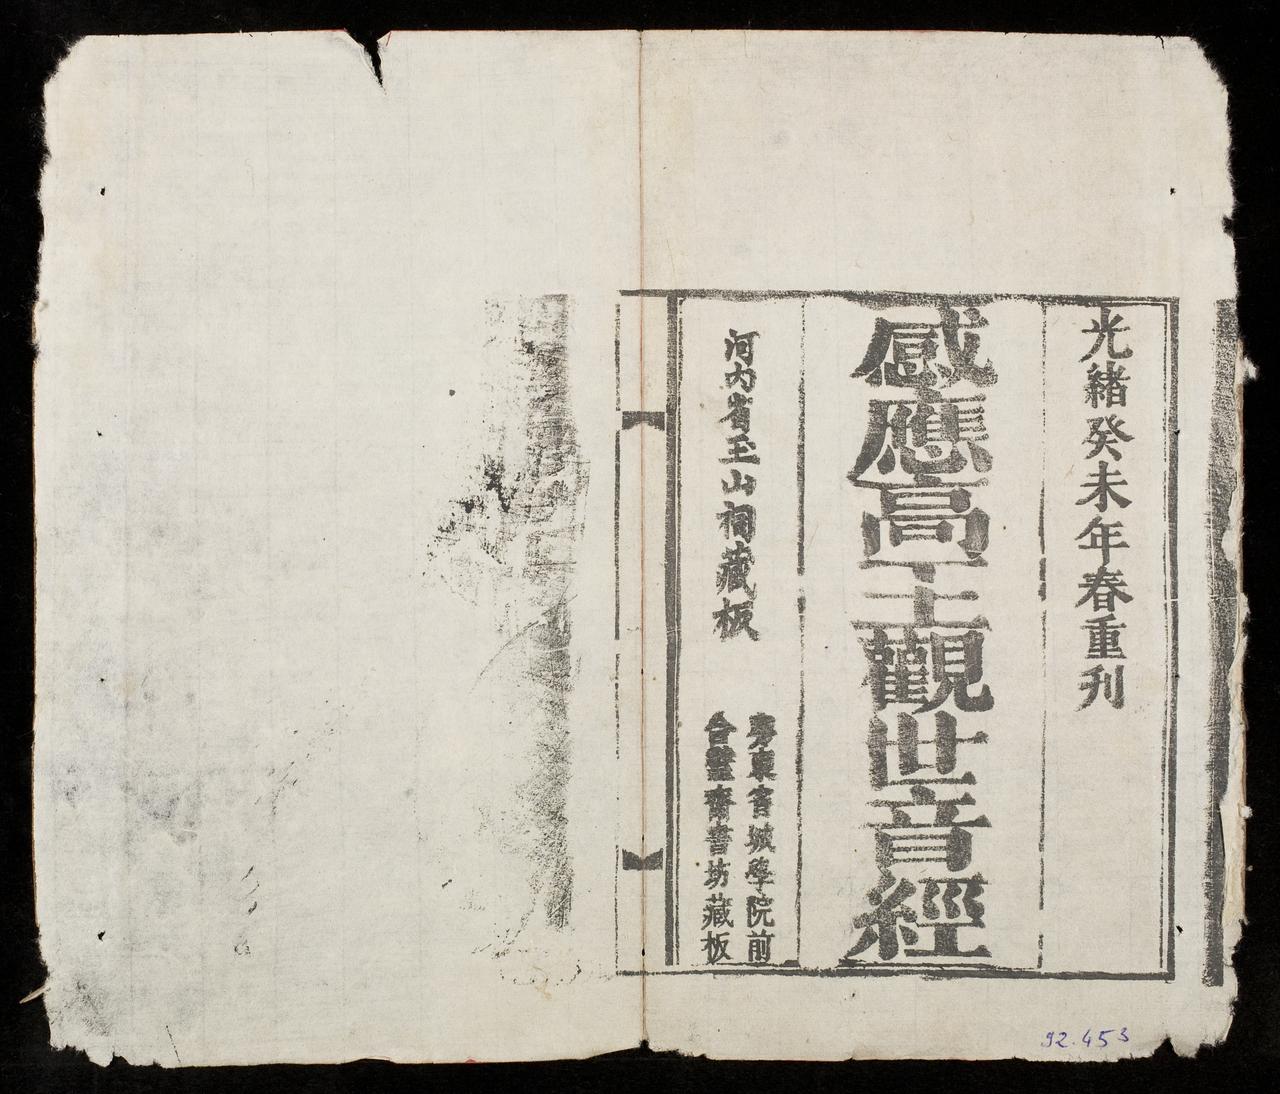 光緒癸未年春重刊
感應高王觀世音經
河内省玉山祠藏板
粤東省城學院前
合璧齋書坊藏板
92.453